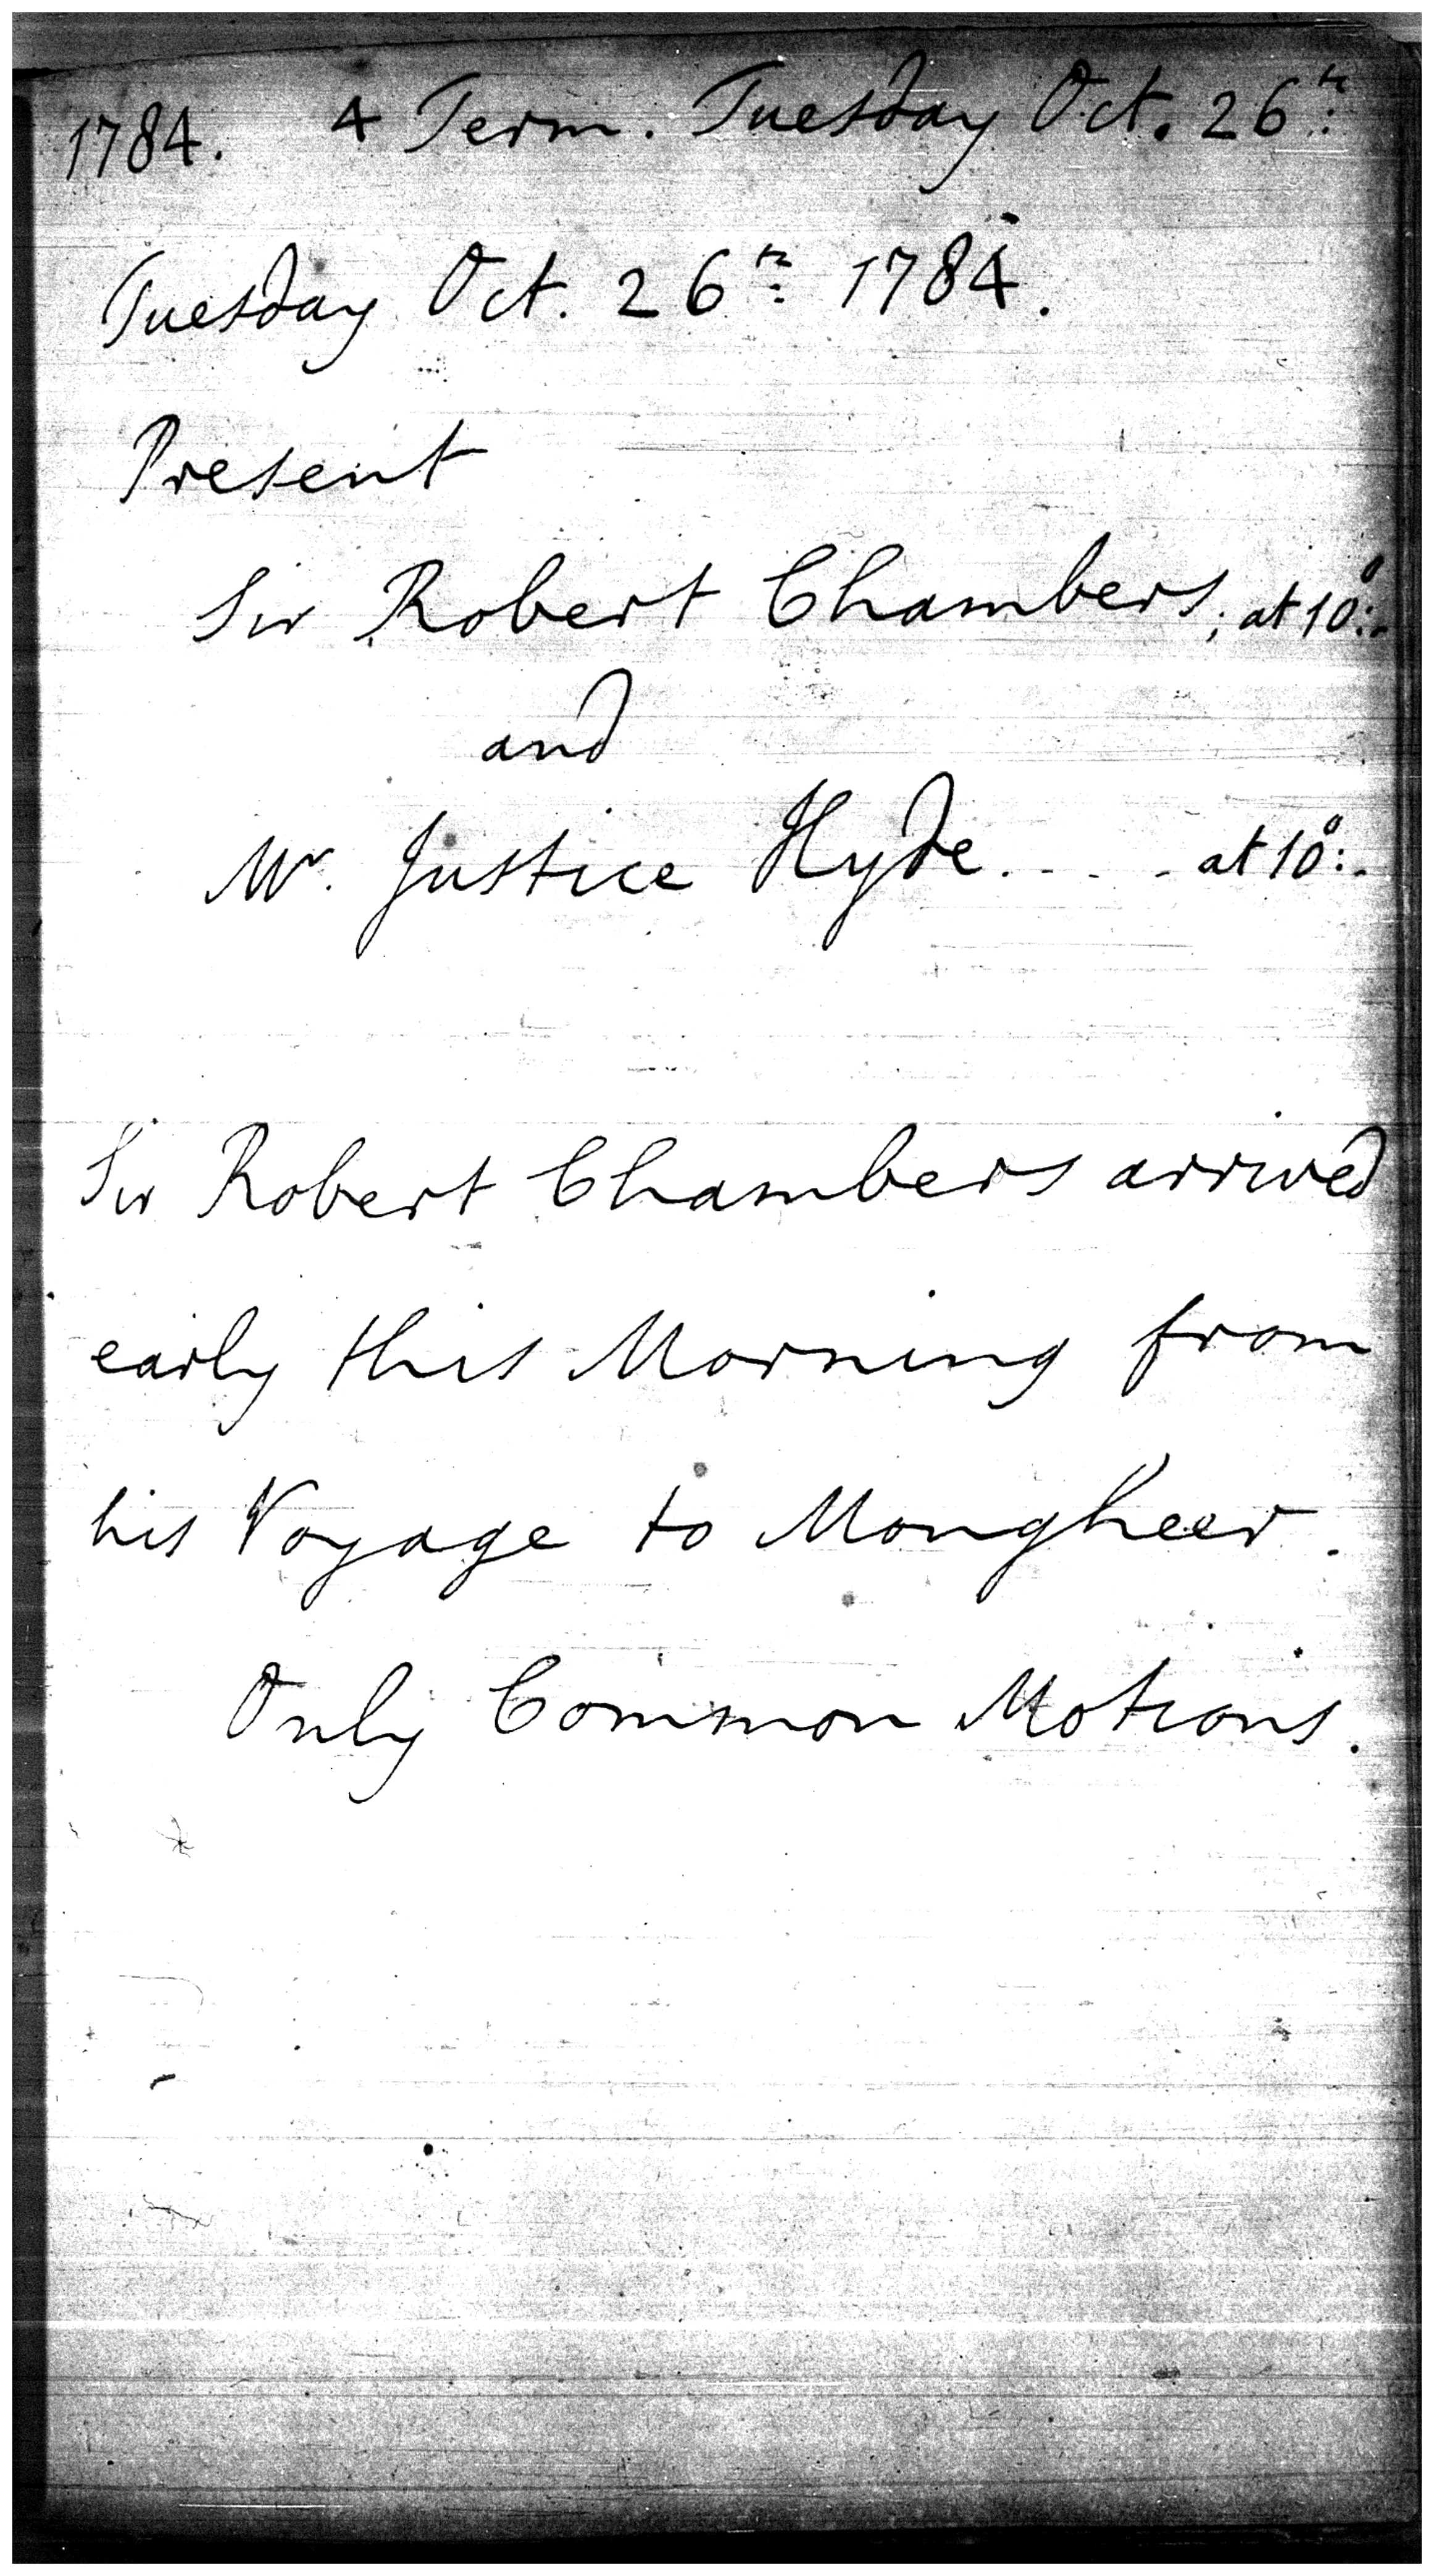 1784. 4 Term. Tuesday Oct. 26th.
Tuesday Oct. 26th. 1784.
Present
Sir Robert Chambers, at 10°:-
and
Mr. Justice Hyde. - - - at 10°:-
Sir Robert Chambers arrived
early this Morning from
his Voyage to Mongheer.
Only Common Motions.